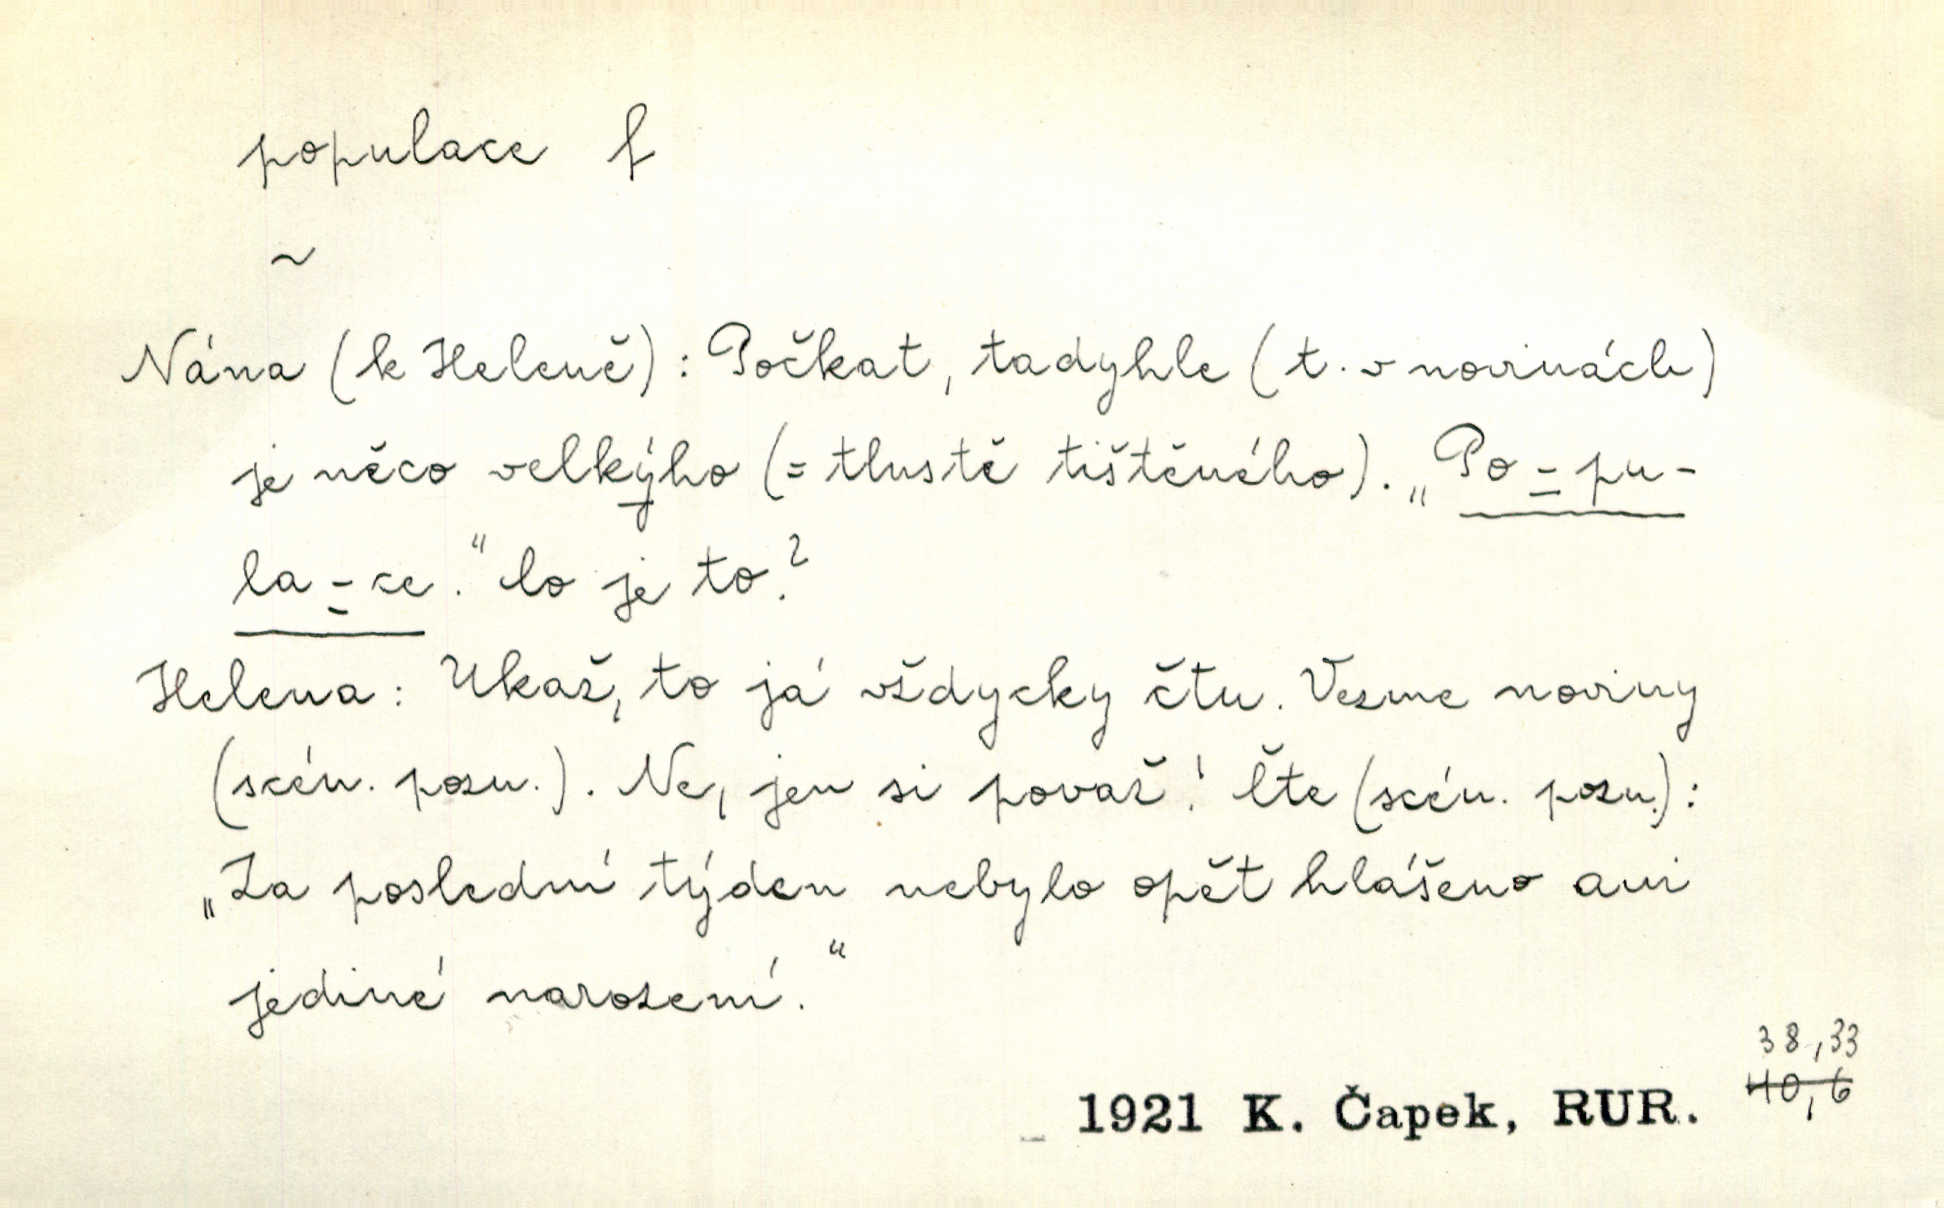 populace f
~
Nána (k Heleně): Počkat, tadyhle (t. v novinách)
je něco velkýho (= tlustě tištěného). „Po-pu-
la-ce.“ Co je to?
Helena: Ukaž, to já vždycky čtu. Vezme noviny
(scén. pozn.). Ne, jen si považ! Čte (scén. pozn.):
„Za poslední týden nebylo opět hlášeno ani
jediné narození.“
38,33
40,6
1921 K. Čapek, RUR.